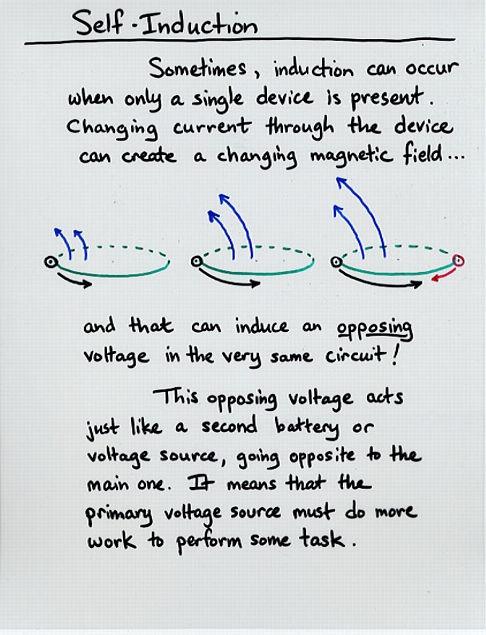 Self-Induction
Sometimes, induction can occur
when only a single device is present.
Changing current through the device
can create a changing magnetic field...
and that can induce an opposing
voltage in the very same circuit!
This opposing voltage acts
just like a second battery or
voltage source, going opposite to the
main one. It means that the
primary voltage source must do more
work to perform some task.